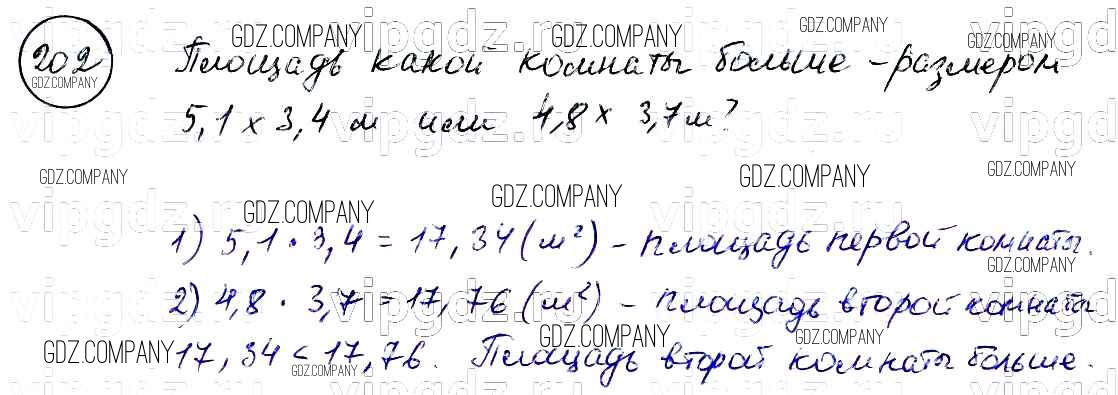 202 Площадь какой комнаты больше - размером
5,1 × 3,4 м или 4,8 × 3,7 м?
1) 5,1 · 3,4 = 17,34 (м²) - площадь первой комнаты.
2) 4,8 · 3,7 = 17,76 (м²) - площадь второй комнаты
17,34 < 17,76. Площадь второй комнаты больше.
GDZ.COMPANY
vipgdz.ru